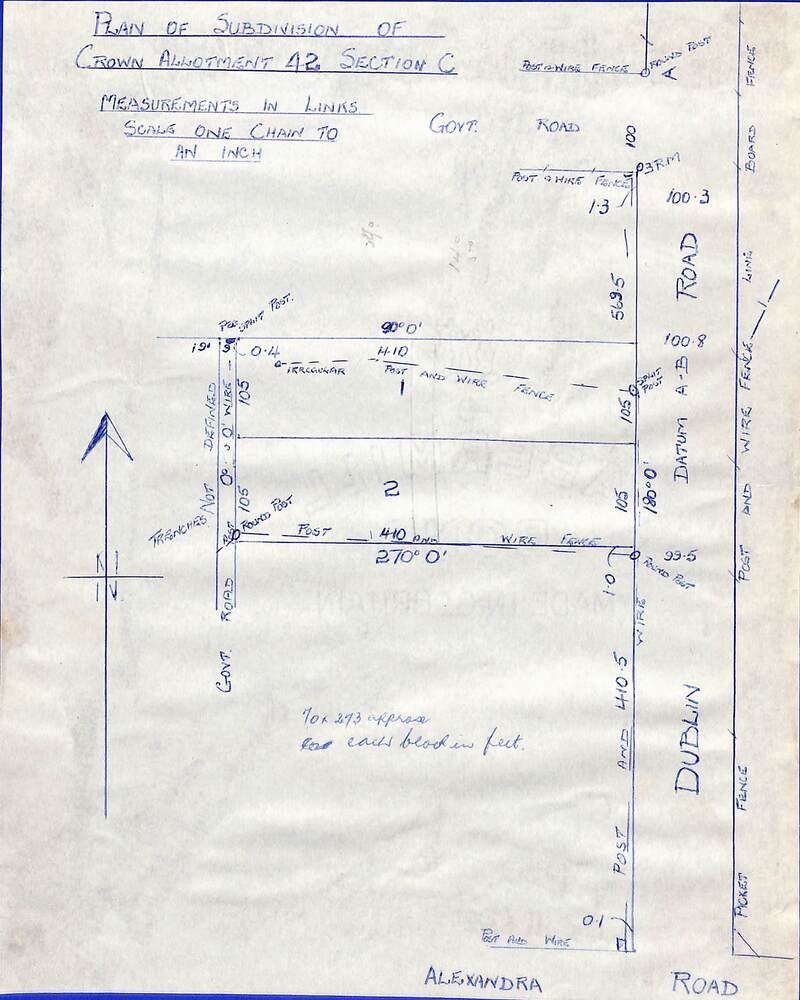 PLAN OF SUBDIVISION OF
CROWN ALLOTMENT 42 SECTION C
MEASUREMENTS IN LINKS
SCALE ONE CHAIN TO
AN INCH
POST & WIRE FENCE
ROUND POST
A
GOVT. ROAD
100
3RM
POST & WIRE FENCE
1·3
100·3
569·5
ROAD
PEG SPLIT POST.
90° 0'
0·4
410
100·8
IRREGULAR
POST AND WIRE FENCE
SPLIT POST
1
105
105
DATUM A-B
DEFINED
WIRE
0° 0'
2
105
105
180° 0'
TRENCHES NOT
POST
ROUND POST
POST 410 AND WIRE FENCE
270° 0'
99·5
ROUND POST
1·0
N
WIRE
GOVT. ROAD
AND 410·5
DUBLIN
70 x 273 approx
each block in feet.
POST
0·1
POST AND WIRE
PICKET FENCE
POST AND WIRE FENCE
LINK
BOARD FENCE
ALEXANDRA ROAD